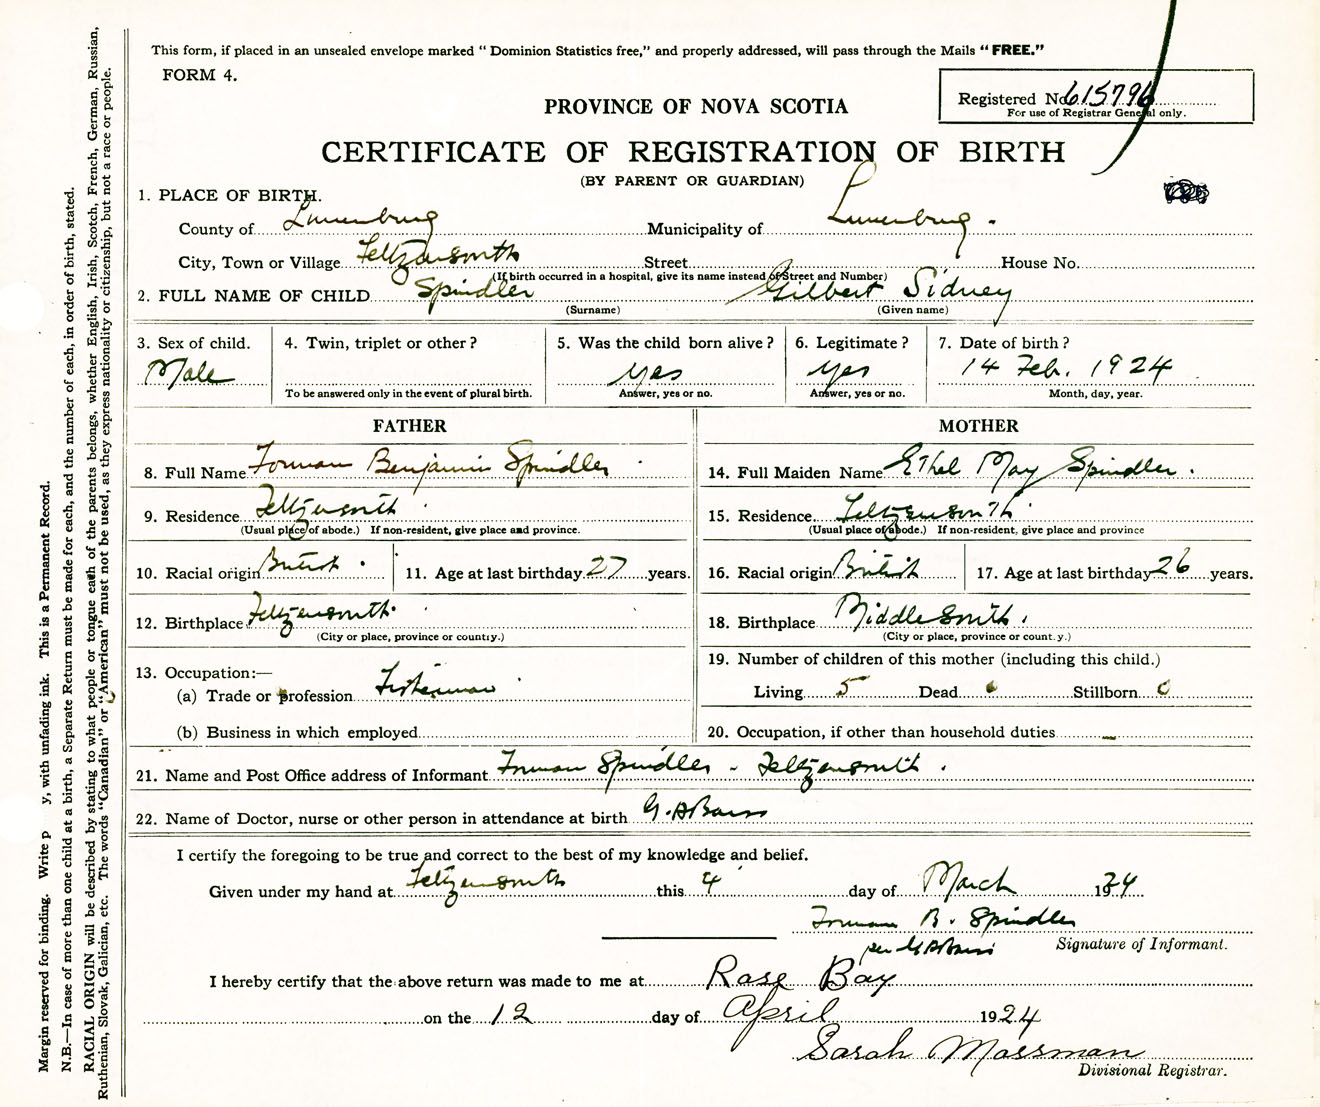 This form, if placed in an unsealed envelope marked “ Dominion Statistics free,” and properly addressed, will pass through the Mails “ FREE.”
FORM 4.
Registered No. 615796
For use of Registrar General only.
PROVINCE OF NOVA SCOTIA
CERTIFICATE OF REGISTRATION OF BIRTH
(BY PARENT OR GUARDIAN)
1. PLACE OF BIRTH.
County of Lunenburg Municipality of Lunenburg.
City, Town or Village Feltzensouth Street House No.
(If birth occurred in a hospital, give its name instead of Street and Number)
2. FULL NAME OF CHILD Spindler Gilbert Sidney
(Surname) (Given name)
3. Sex of child. 4. Twin, triplet or other ? 5. Was the child born alive ? 6. Legitimate ? 7. Date of birth ?
Male yes yes 14 Feb. 1924
To be answered only in the event of plural birth. Answer, yes or no. Answer, yes or no. Month, day, year.
FATHER
8. Full Name Forman Benjamin Spindler
9. Residence Feltzensouth
(Usual place of abode.) If non-resident, give place and province.
10. Racial origin British 11. Age at last birthday 27 years.
12. Birthplace Feltzensouth
(City or place, province or country.)
13. Occupation:—
(a) Trade or profession Fisherman
(b) Business in which employed
MOTHER
14. Full Maiden Name Ethel May Spindler.
15. Residence Feltzensouth
(Usual place of abode.) If non-resident, give place and province
16. Racial origin British 17. Age at last birthday 26 years.
18. Birthplace Middle South.
(City or place, province or count.y.)
19. Number of children of this mother (including this child.)
Living 5 Dead 0 Stillborn 0
20. Occupation, if other than household duties —
21. Name and Post Office address of Informant Forman Spindler - Feltzensouth.
22. Name of Doctor, nurse or other person in attendance at birth
I certify the foregoing to be true and correct to the best of my knowledge and belief.
Given under my hand at Feltzensouth this 4 day of March 1924
Forman B. Spindler
Signature of Informant.
per
I hereby certify that the above return was made to me at Rose Bay
on the 12 day of April 1924
Sarah Mossman
Divisional Registrar.
Margin reserved for binding. Write p y, with unfading ink. This is a Permanent Record.
N.B.—In case of more than one child at a birth, a Separate Return must be made for each, and the number of each, in order of birth, stated.
RACIAL ORIGIN will be described by stating to what people or tongue each of the parents belongs, whether English, Irish, Scotch, French, German, Russian,
Ruthenian, Slovak, Galician, etc. The words “Canadian” or “American” must not be used, as they express nationality or citizenship, but not a race or people.